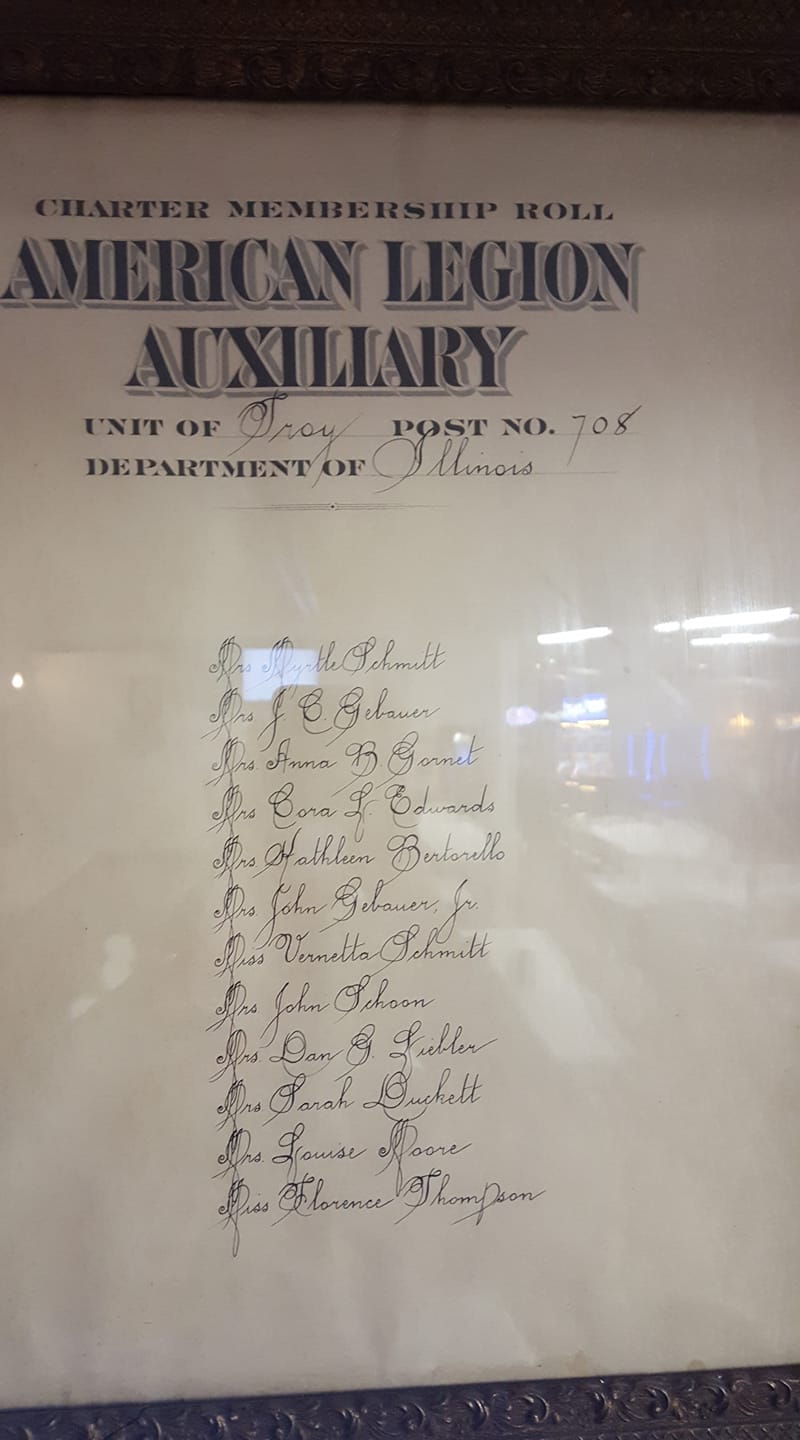 CHARTER MEMBERSHIP ROLL
AMERICAN LEGION
AUXILIARY
UNIT OF Troy POST NO. 708
DEPARTMENT OF Illinois
Mrs Myrtle Schmitt
Mrs J. C. Gebauer
Mrs. Anna B. Gornet
Mrs Cora L. Edwards
Mrs. Kathleen Bertorello
Mrs. John Gebauer, Jr.
Miss Vernetta Schmitt
Mrs. John Schoon
Mrs. Dan G. Liebler
Mrs. Sarah Duckett
Mrs. Louise Moore
Miss Florence Thompson